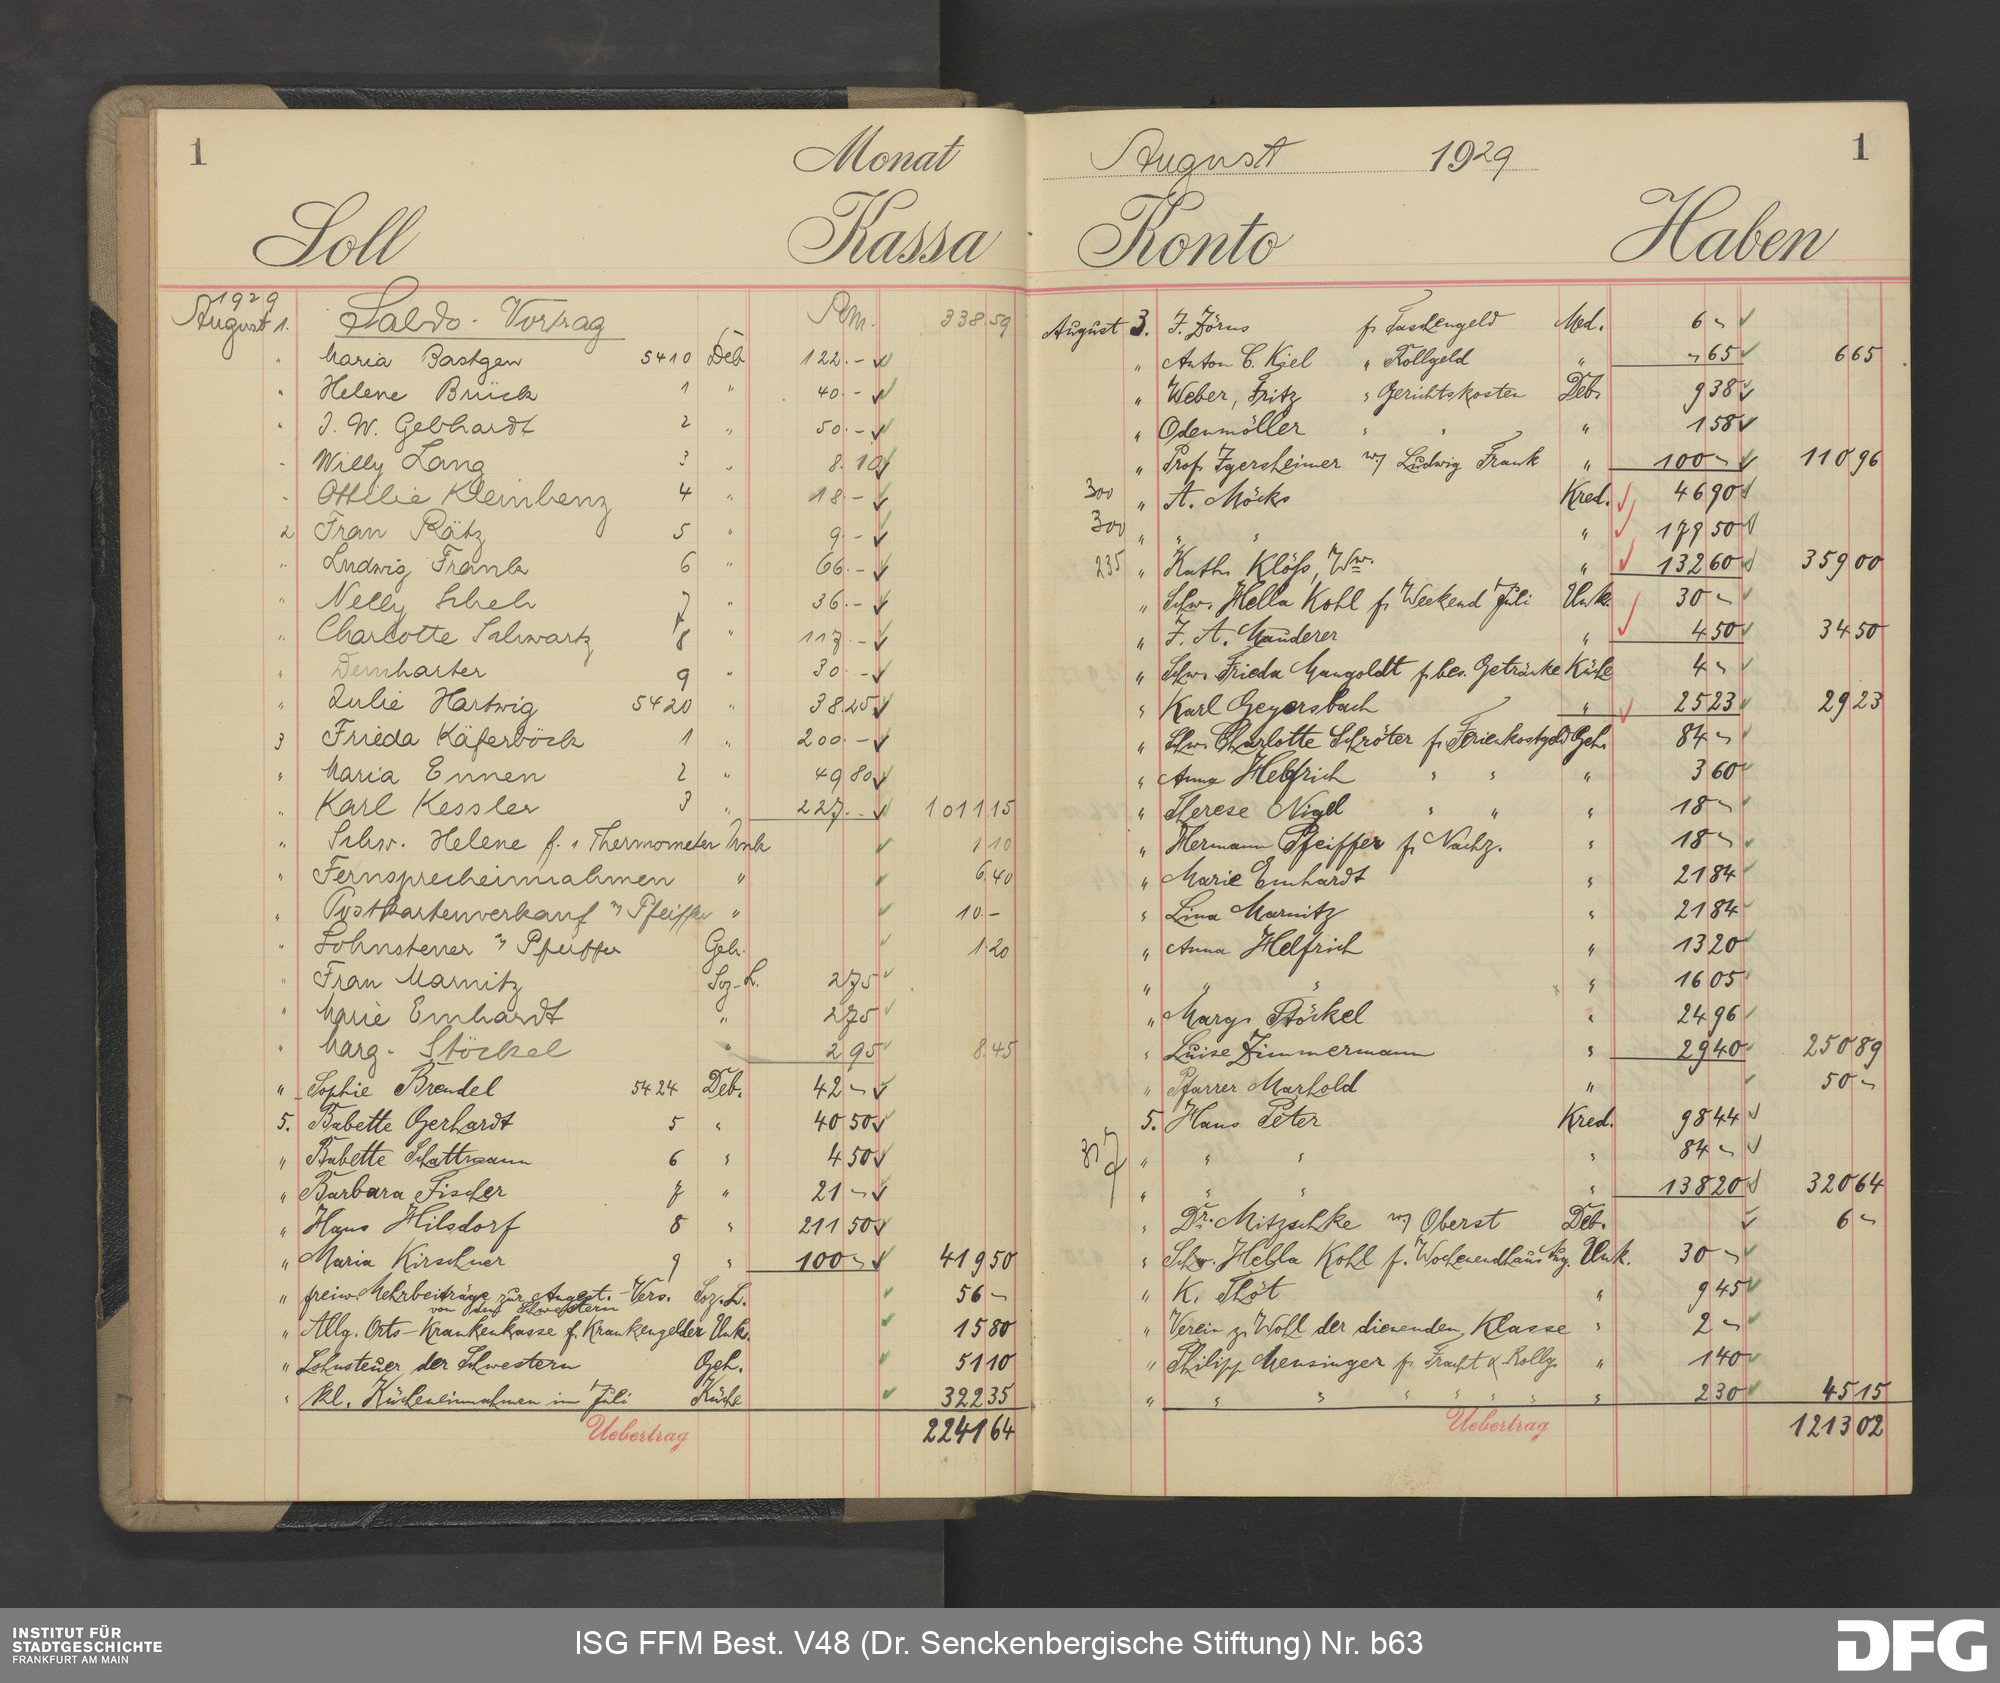 1 Monat
Soll Kassa
1929
August 1. Saldo-Vortrag Rm. 338.59
" Maria Bastgen 5410 Deb 122.-
" Helene Brück 1 " 40.-
" J. W. Gebhardt 2 " 50.-
" Willy Lang 3 " 8.10
" Ottilie Kleinbenz 4 " 18.-
2 Frau Rätz 5 " 9.-
" Ludwig Frank 6 " 66.-
" Nelly 7 " 36.-
" Charlotte Schwartz 8 " 117.-
" Demharter 9 " 30.-
" Julie Hartwig 5420 " 38 25
3 Frieda Käferböck 1 " 200.-
" Maria Ennen 2 " 49 80
" Karl Kessler 3 " 227.- 1011 15
" Schw. Helene f. 1 Thermometer Unk 1 10
" Fernsprecheinnahmen " 6.40
" Postkartenverkauf " Pfeiffer " 10.-
" Lohnsteuer " Pfeiffer Geh. 1.20
" Frau Marnitz Soz-L. 2 75
" Marie Emhardt " 2 75
" Marg. Stöckel " 2 95 8.45
" Sophie Brendel 5424 Deb. 42 -
5. Babette Gerhardt 5 " 40 50
" Babette Schattmann 6 " 4 50
" Barbara Fischer 7 " 21 -
" Hans Hilsdorf 8 " 211 50
" Maria Kirschner 9 " 100 - 419 50
" freiw. Mehrbeiträge zur Angest.-Vers. Soz. L. 56 -
von den Schwestern
" Allg. Orts-Krankenkasse f. Krankengelder Unk. 15 80
" Lohnsteuer der Schwestern Geh. 51 10
" kl. Kücheneinnahmen im Juli Küche 322 35
Uebertrag 2241 64
August 1929 1
Konto Haben
August 3. F. Dörns f. Taschengeld Med. 6 -
" Anton C. Kiel " Rollgeld " - 65 6 65
" Weber, Fritz " Gerichtskosten Deb. 9 38
" Odenmöller " " " 1 58
" Prof. Igersheimer w/ Ludwig Frank " 100 - 110 96
300 " A. Möcks Kred. 46 90
300 " " " " 179 50
235 " Kath. Klöss, Ww. " 132 60 359 00
" Schw. Hella Kohl f. Weekend Juli Unk. 30 -
" F. A. Mauderer " 4 50 34 50
" Schw. Frieda Mangoldt f. bes. Getränke Küche 4 -
" Karl Geyersbach " 25 23 29 23
" Schw. Charlotte Schröter f. Ferienkostgeld Geh. 84 -
" Anna Helfrich " " " 3 60
" Therese Nigel " " " 18 -
" Hermann Pfeiffer f. Nachz. " 18 -
" Marie Emhardt " 21 84
" Lina Marnitz " 21 84
" Anna Helfrich " 13 20
" " " " 16 05
" Marg. Stöckel " 24 96
" Luise Zimmermann " 29 40 250 89
" Pfarrer Marhold " 50 -
5. Hans Peter Kred. 98 44
" " " " 84 -
" " " " 138 20 320 64
" Dr. Mitzschke w/ Oberst Deb. 6 -
" Schw. Hella Kohl f. Wochenendhaus Aug. Unk. 30 -
" K. Thöt " 9 45
" Verein z. Wohl der dienenden Klasse " 2 -
" Philipp Mensinger f. Fracht & Rollg. " 1 40
" " " " " " " " 2 30 45 15
Uebertrag 1213 02
INSTITUT FÜR
STADTGESCHICHTE
FRANKFURT AM MAIN
ISG FFM Best. V48 (Dr. Senckenbergische Stiftung) Nr. b63
DFG